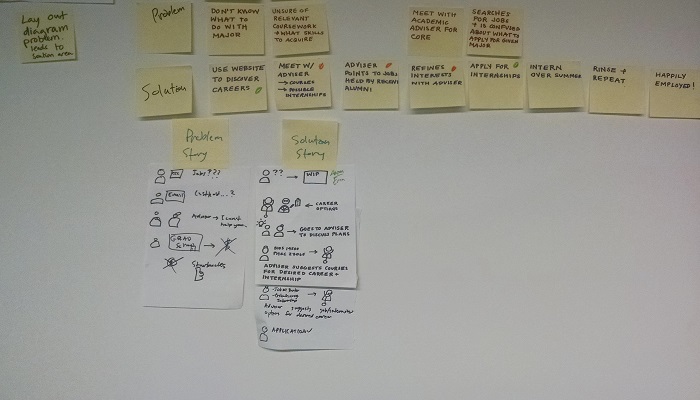 Lay out
diagram
problem.
leads to
solution area
Problem
DON'T KNOW
WHAT TO
DO WITH
MAJOR
UNSURE OF
RELEVANT
COURSEWORK
+ WHAT SKILLS
TO ACQUIRE
MEET WITH
ACADEMIC
ADVISER FOR
CORE
SEARCHES
FOR JOBS
+ IS CONFUSED
ABOUT WHAT TO
APPLY FOR GIVEN
MAJOR
Solution
USE WEBSITE
TO DISCOVER
CAREERS
MEET W/
ADVISER
→ COURSES
→ POSSIBLE
INTERNSHIPS
ADVISER
POINTS TO JOBS
HELD BY RECENT
ALUMNI
REFINES
INTERESTS
WITH ADVISER
APPLY FOR
INTERNSHIPS
INTERN
OVER SUMMER
RINSE +
REPEAT
HAPPILY
EMPLOYED!
Problem
Story
Solution
Story
Jobs???
Email
Adviser → I can't
help you..
GRAD
School
Starbucks
?? → WEP
← CAREER
OPTIONS
GOES TO ADVISER
TO DISCUSS PLANS
ADVISER SUGGESTS COURSES
FOR DESIRED CAREER +
INTERNSHIP
Adviser suggests job/internship
options for desired career
APPLICATION